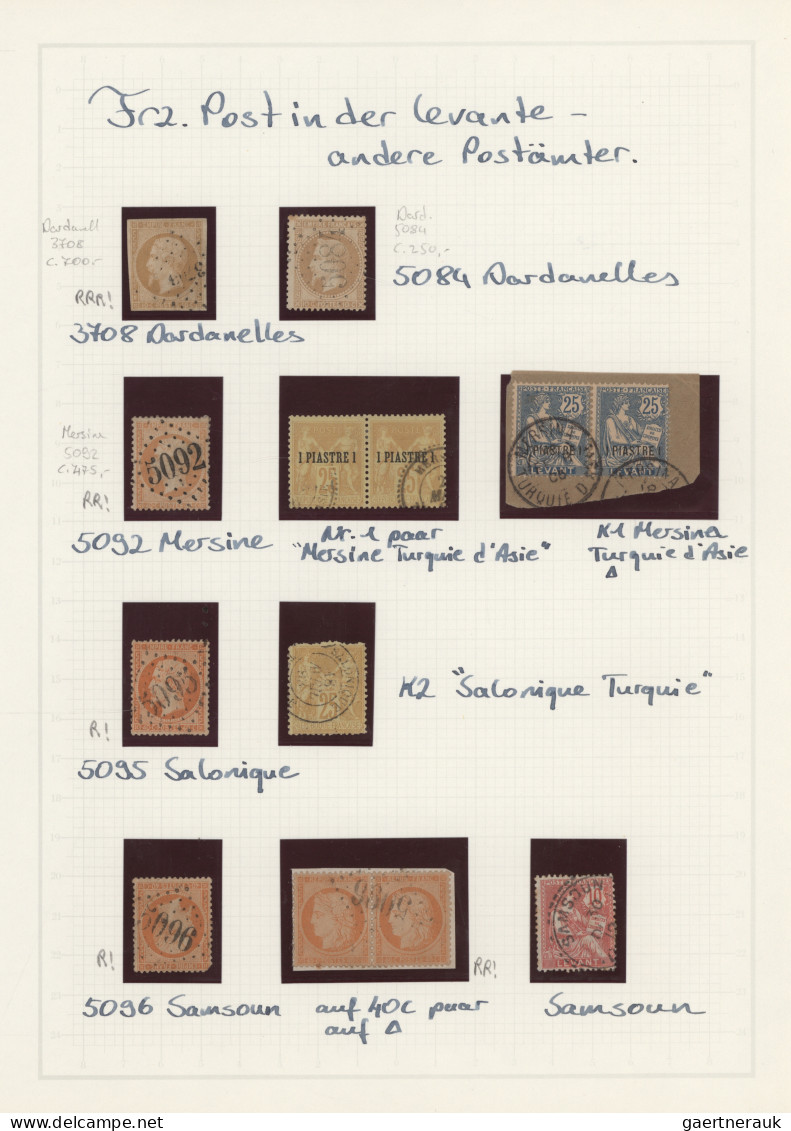 Frz. Post in der Levante -
andere Postämter.
Dardanell
3708
c. 700,-
RRR!
3708 Dardanelles
Dard.
5084
c. 250,-
5084 Dardanelles
Mersine
5092
c. 475,-
RR!
5092
5092 Mersine
1 PIASTRE 1
1 PIASTRE 1
Nr. 1 paar
"Mersine Turquie d'Asie"
POSTE FRANÇAISE
25
25
1 PIASTRE 1
PIASTRE 1
LEVANT
LEVANT
MERSINA
TURQUIE D'
K1 Mersina
Turquie d'Asie
Δ
EMPIRE FRANC
5095
R!
5095 Salonique
25
K2 "Salonique Turquie"
5096
R!
5096 Samsoun
5096
RR!
auf 40c paar
auf Δ
10
SAMSOUN
LEVANT
Samsoun
gaertnerauk